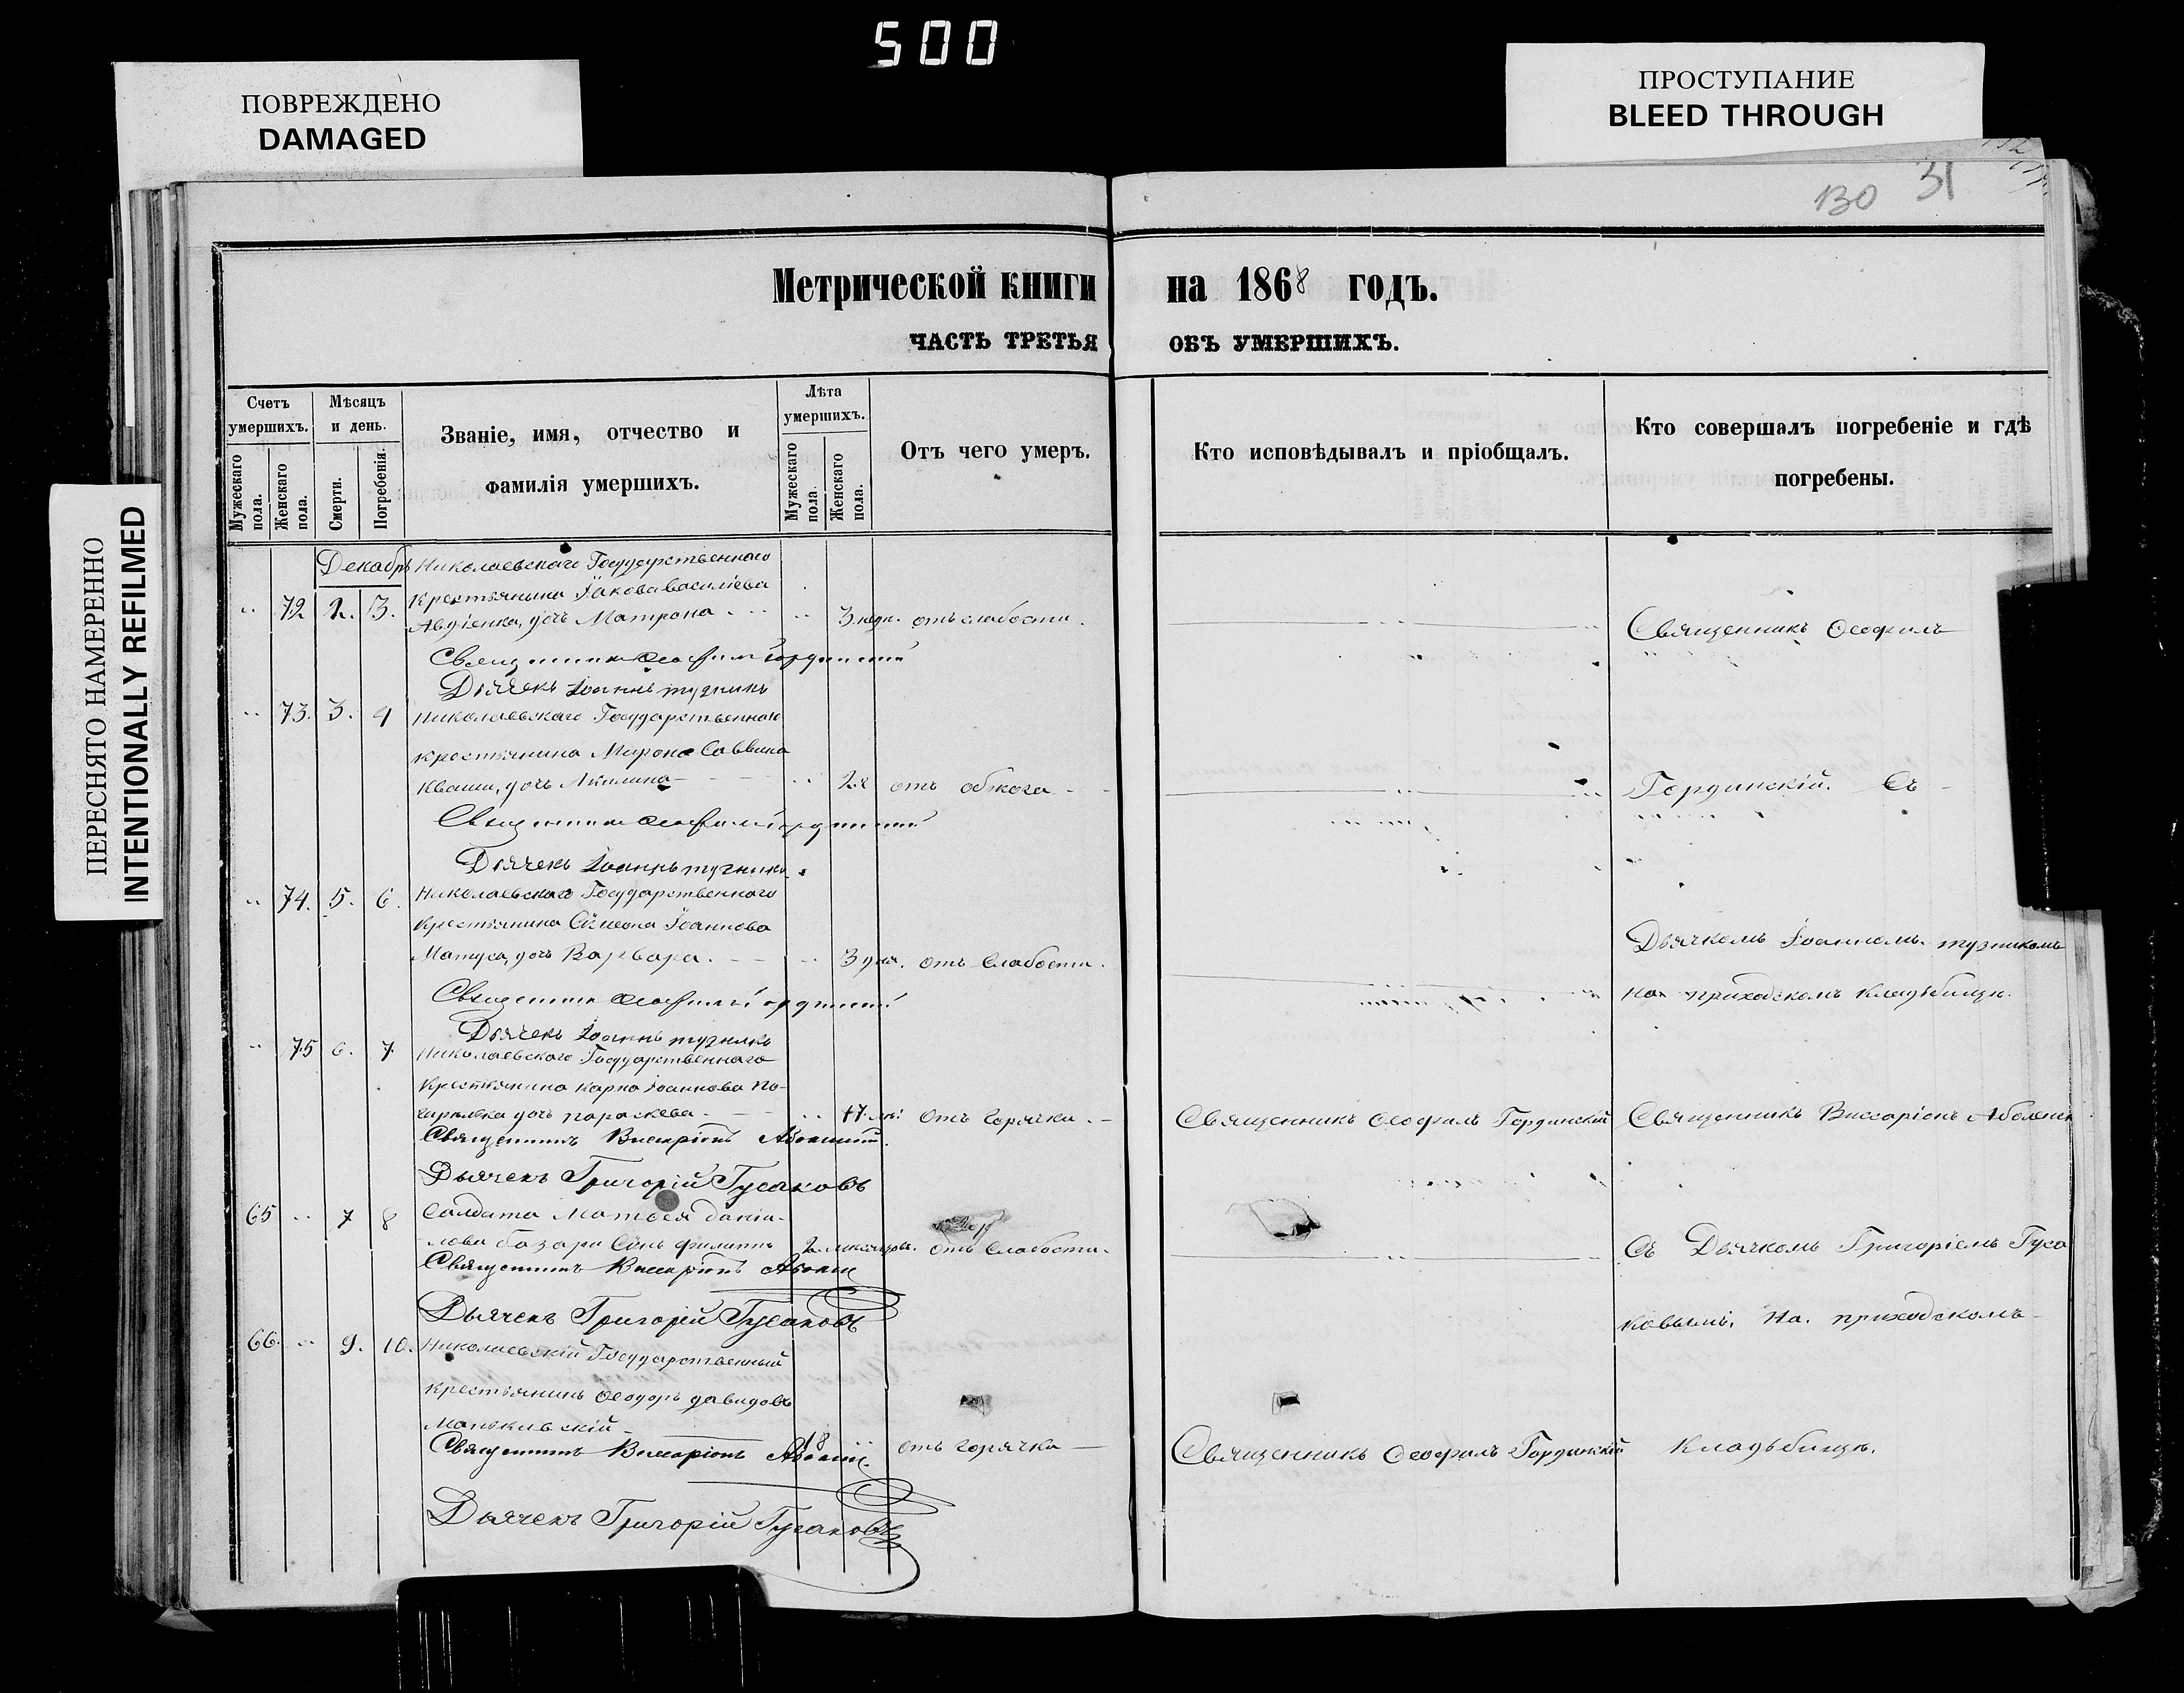 500
ПОВРЕЖДЕНО
DAMAGED
ПРОСТУПАНИЕ
BLEED THROUGH
ПЕРЕСНЯТО НАМЕРЕННО
INTENTIONALLY REFILMED
130 31
Метрической книги на 1868 годъ.
ЧАСТЬ ТРЕТЬЯ ОБЪ УМЕРШИХЪ.
Счетъ умершихъ.
Мужескаго пола.
Женскаго пола.
Мѣсяцъ и день.
Смерти.
Погребенія.
Званіе, имя, отчество и
фамилія умершихъ.
Лѣта умершихъ.
Мужескаго пола.
Женскаго пола.
Отъ чего умеръ.
Кто исповѣдывалъ и пріобщалъ.
Кто совершалъ погребеніе и гдѣ
погребены.
Декабрь Николаевскаго Государственнаго
72 3. Крестьянина Іакова Василіева
Авдіенка, дочь Матрона 3 нед. отъ слабости. Священникъ Ѳеофилъ
Священникъ Ѳеофилъ Гординскій
Дьячекъ Іоаннъ Тузникъ
73. 3. 4 Николаевскаго Государственнаго
крестьянина Мирона Саввина
Кваши, дочь Акилина отъ обжога Гординскій. Съ
Священникъ Ѳеофилъ Гординскій
Дьячекъ Іоаннъ Тузникъ
74. 5. 6. Николаевскаго Государственнаго
Крестьянина Сѵмеона Іоаннова Дьячкомъ Іоанномъ Тузникомъ
дочь Варвара. 3 дня. отъ Слабости.
Священникъ Ѳеофилъ Гординскій на приходскомъ кладьбищѣ.
Дьячекъ Іоаннъ Тузникъ
75 6. 7. Николаевскаго Государственнаго
Крестьянина Карпа Іоаннова По-
дочь Параскева 17 лѣтъ Отъ горячки. Священникъ Ѳеофилъ Гординскій Священникъ Виссаріонъ
Священникъ Виссаріонъ
Дьячекъ Григорій Гусаковъ
65 7 8 Солдата Матѳея Даніи-
лова Сынъ Филиппъ 2 отъ Слабости. Съ Дьячкомъ Григоріемъ Гуса
Священникъ Виссаріонъ
Дьячекъ Григорій Гусаковъ ковымъ. На. приходскомъ
66. 9. 10. Николаевскій Государственный
крестьянинъ Ѳеодоръ Давидовъ
Маньковскій 18 отъ горячки Священникъ Ѳеофилъ Гординскій кладьбищѣ.
Священникъ Виссаріонъ
Дьячекъ Григорій Гусаковъ